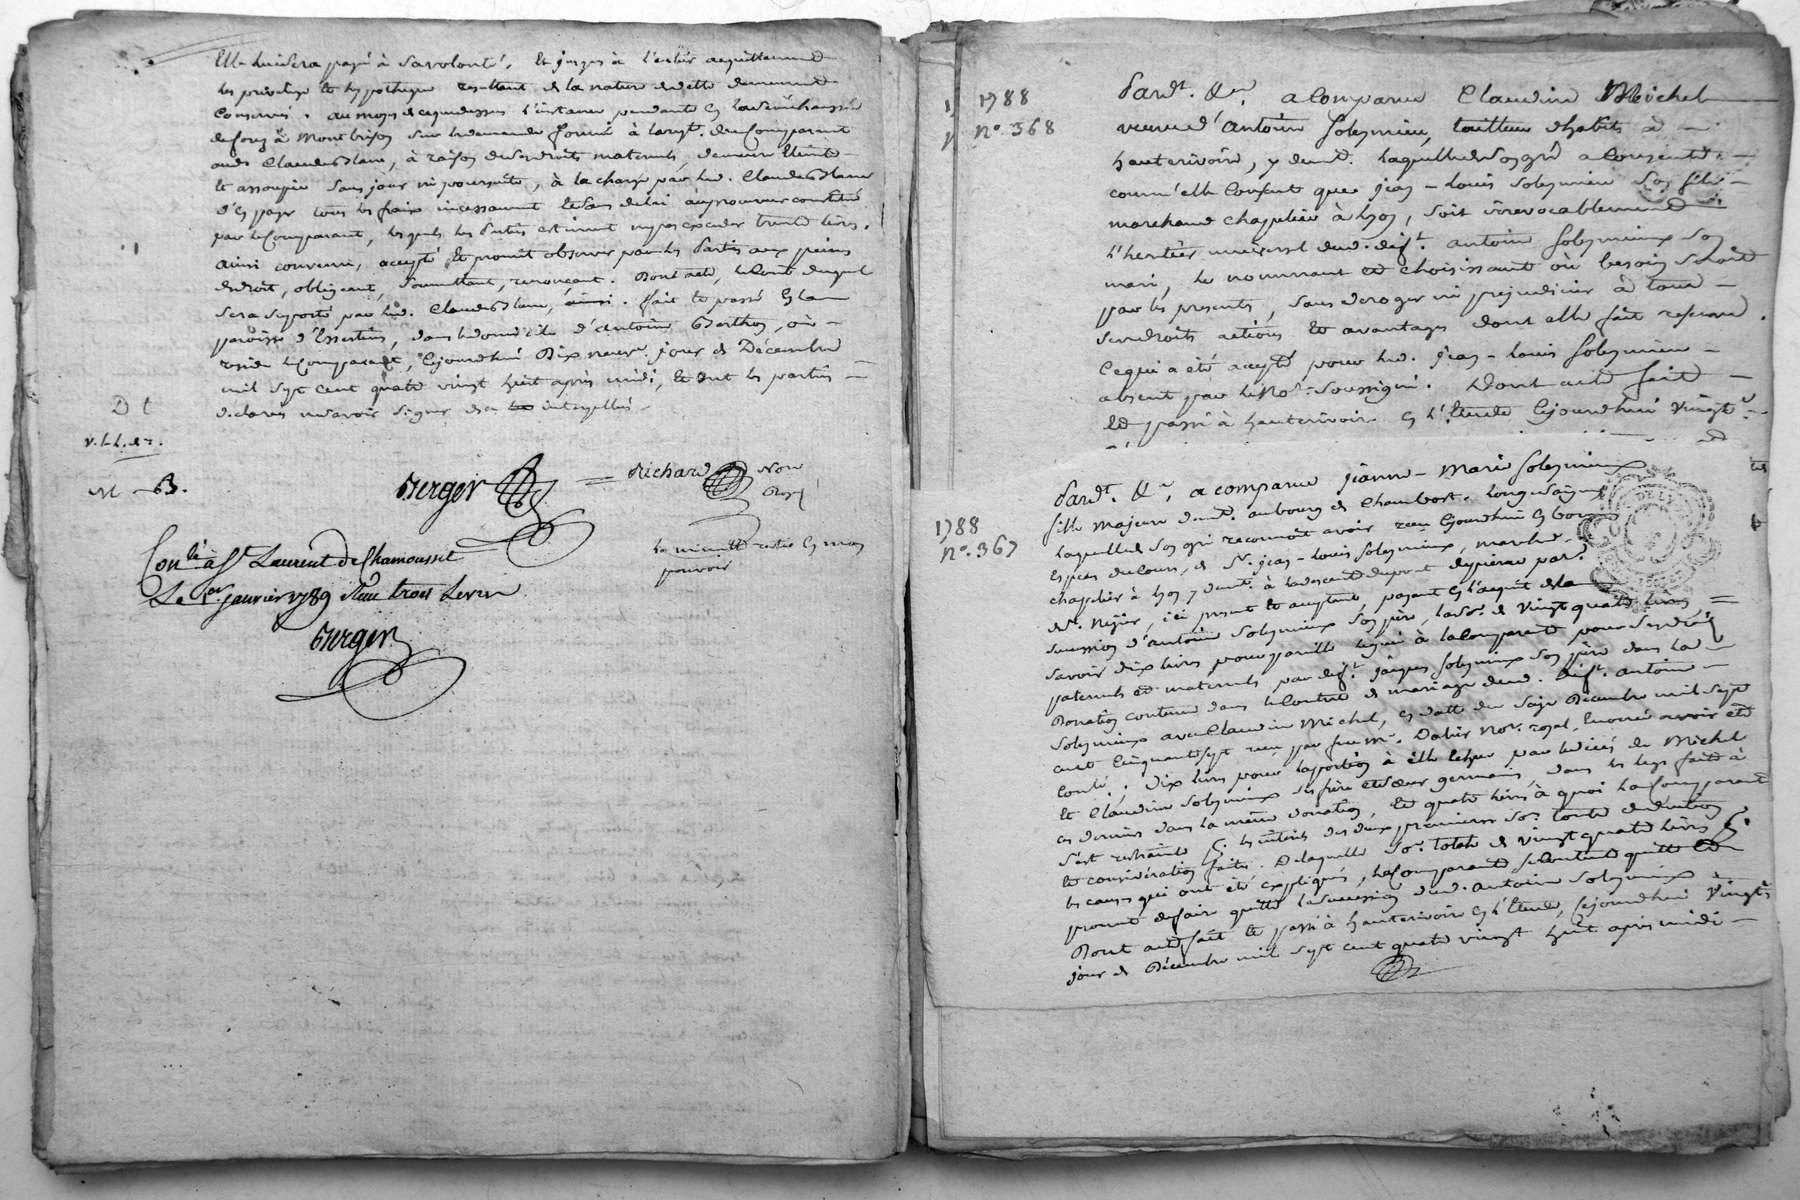 Elle lui sera payé à sa volonté. Et jusques à l'entier acquittement
les privilege et hypotheque resultant de la nature de dette demeurent
Conservés. au moyen de ce que dessus l'instance pendante en la sénéchaussée
de forez à Montbrison sur la demande formée à la reqte. du Comparant
aud. Claude Blanc, à raison de ses droits maternels, demeure éteinte
et assoupie sans jour ni poursuite, à la charge par led. Claude Blanc
d'en payer tous les fraix incessamment
par le Comparant, lesquels les Parties estiment ne pas exceder trente livres.
ainsi convenu, accepté et promit observer par les Parties aux peines
de droit, obligeant, soumettant, renonçant. Dont acte, le Coût duquel
sera suporté par led. Claude Blanc, ainsi. fait et passé en la
paroisse d'Essertines, dans le domicile d'antoine Berthon, où
reside le Comparant, Cejourdhui Dix neuv. jour de Décembre
mil sept cent quatre vingt huit après midi, et ont les parties
déclarés ne savoir signer de ce interpellés.
D t
v. l. h. d. r.
M B.
Berger = Richard Not.
Royal
la minutte restée en mon
pouvoir
Conlé à St Laurent de Chamousset
Le 1er janvier 1789 Reçu trois Livres
Berger
1788
N°. 368
Pardt. &a. a Comparue Claudine Michel
veuve d'Antoine Soleymieu, tailleur d'habits à
hauterivoire, y demt. laquelle de son gré a Consenti
comm'elle Consent que jean-louis Soleymieu son fils
marchand chapelier à lyon, soit irrevocablement
l'heritier universel dud. deft. antoine Soleymieux son
mari, le nommant et choisissant où besoin seroit
par les presentes, sans deroger ni prejudicier à tous
ses droits actions et avantages dont elle fait reserve.
Ce qui a été accepté pour led. jean-louis Soleymieu
absent par le Nore. soussigné. Dont acte fait
et passé à hauterivoire en l'Etude Cejourdhui vingte.
1788
N°. 367
Pardt. &a. a comparue jeanne-Marie Soleymieux
fille majeure demt. au bourg de Chambost. longuesaigne
laquelle de son gré reconnoît avoir reçu Cejourdhui en bonnes
Especes du Cours, de Sr. jean-louis Soleymieux, marchd.
chapelier à lyon y demt. à la descente du pont de pierre parsse.
de St. Nizier, ici present et acceptant, payant en l'acquit de la
succession d'antoine Soleymieux son père, la Some. de Vingt quatre livres,
Savoir dix livres pour pareille leguée à la Comparante pour ses droits
paternels et maternels par deft. jacques Soleymieux son père dans la
Donation contenue dans le Contrat de mariage dud. deft. antoine
Soleymieux avec Claudine Michel, en datte du Seize Décembre mil sept
cent Cinquante sept reçu par feu Me. Dobir Nore. royal, Enoncé avoir été
Conlé.; Dix livres pour la portion à elle échue par le décès de Michel
et Claudine Soleymieux ses frère et Sœur germains, dans les legs faits à
ces derniers dans la même donation, et quatre livres à quoi la Comparante
s'est restrainte pr. les intérêts des deux premieres Somes. toute deduction
et consideration faite. De laquelle Some. totale de Vingt quatre livres pr.
les causes qui ont été expliquées, la Comparante se Contente quitte et
promet de faire quitter la succession dud. antoine Soleymieux
Dont acte fait et passé à hauterivoire en l'Etude, Cejourdhui Vingte.
jour de Décembre mil sept cent quatre vingt huit après midi